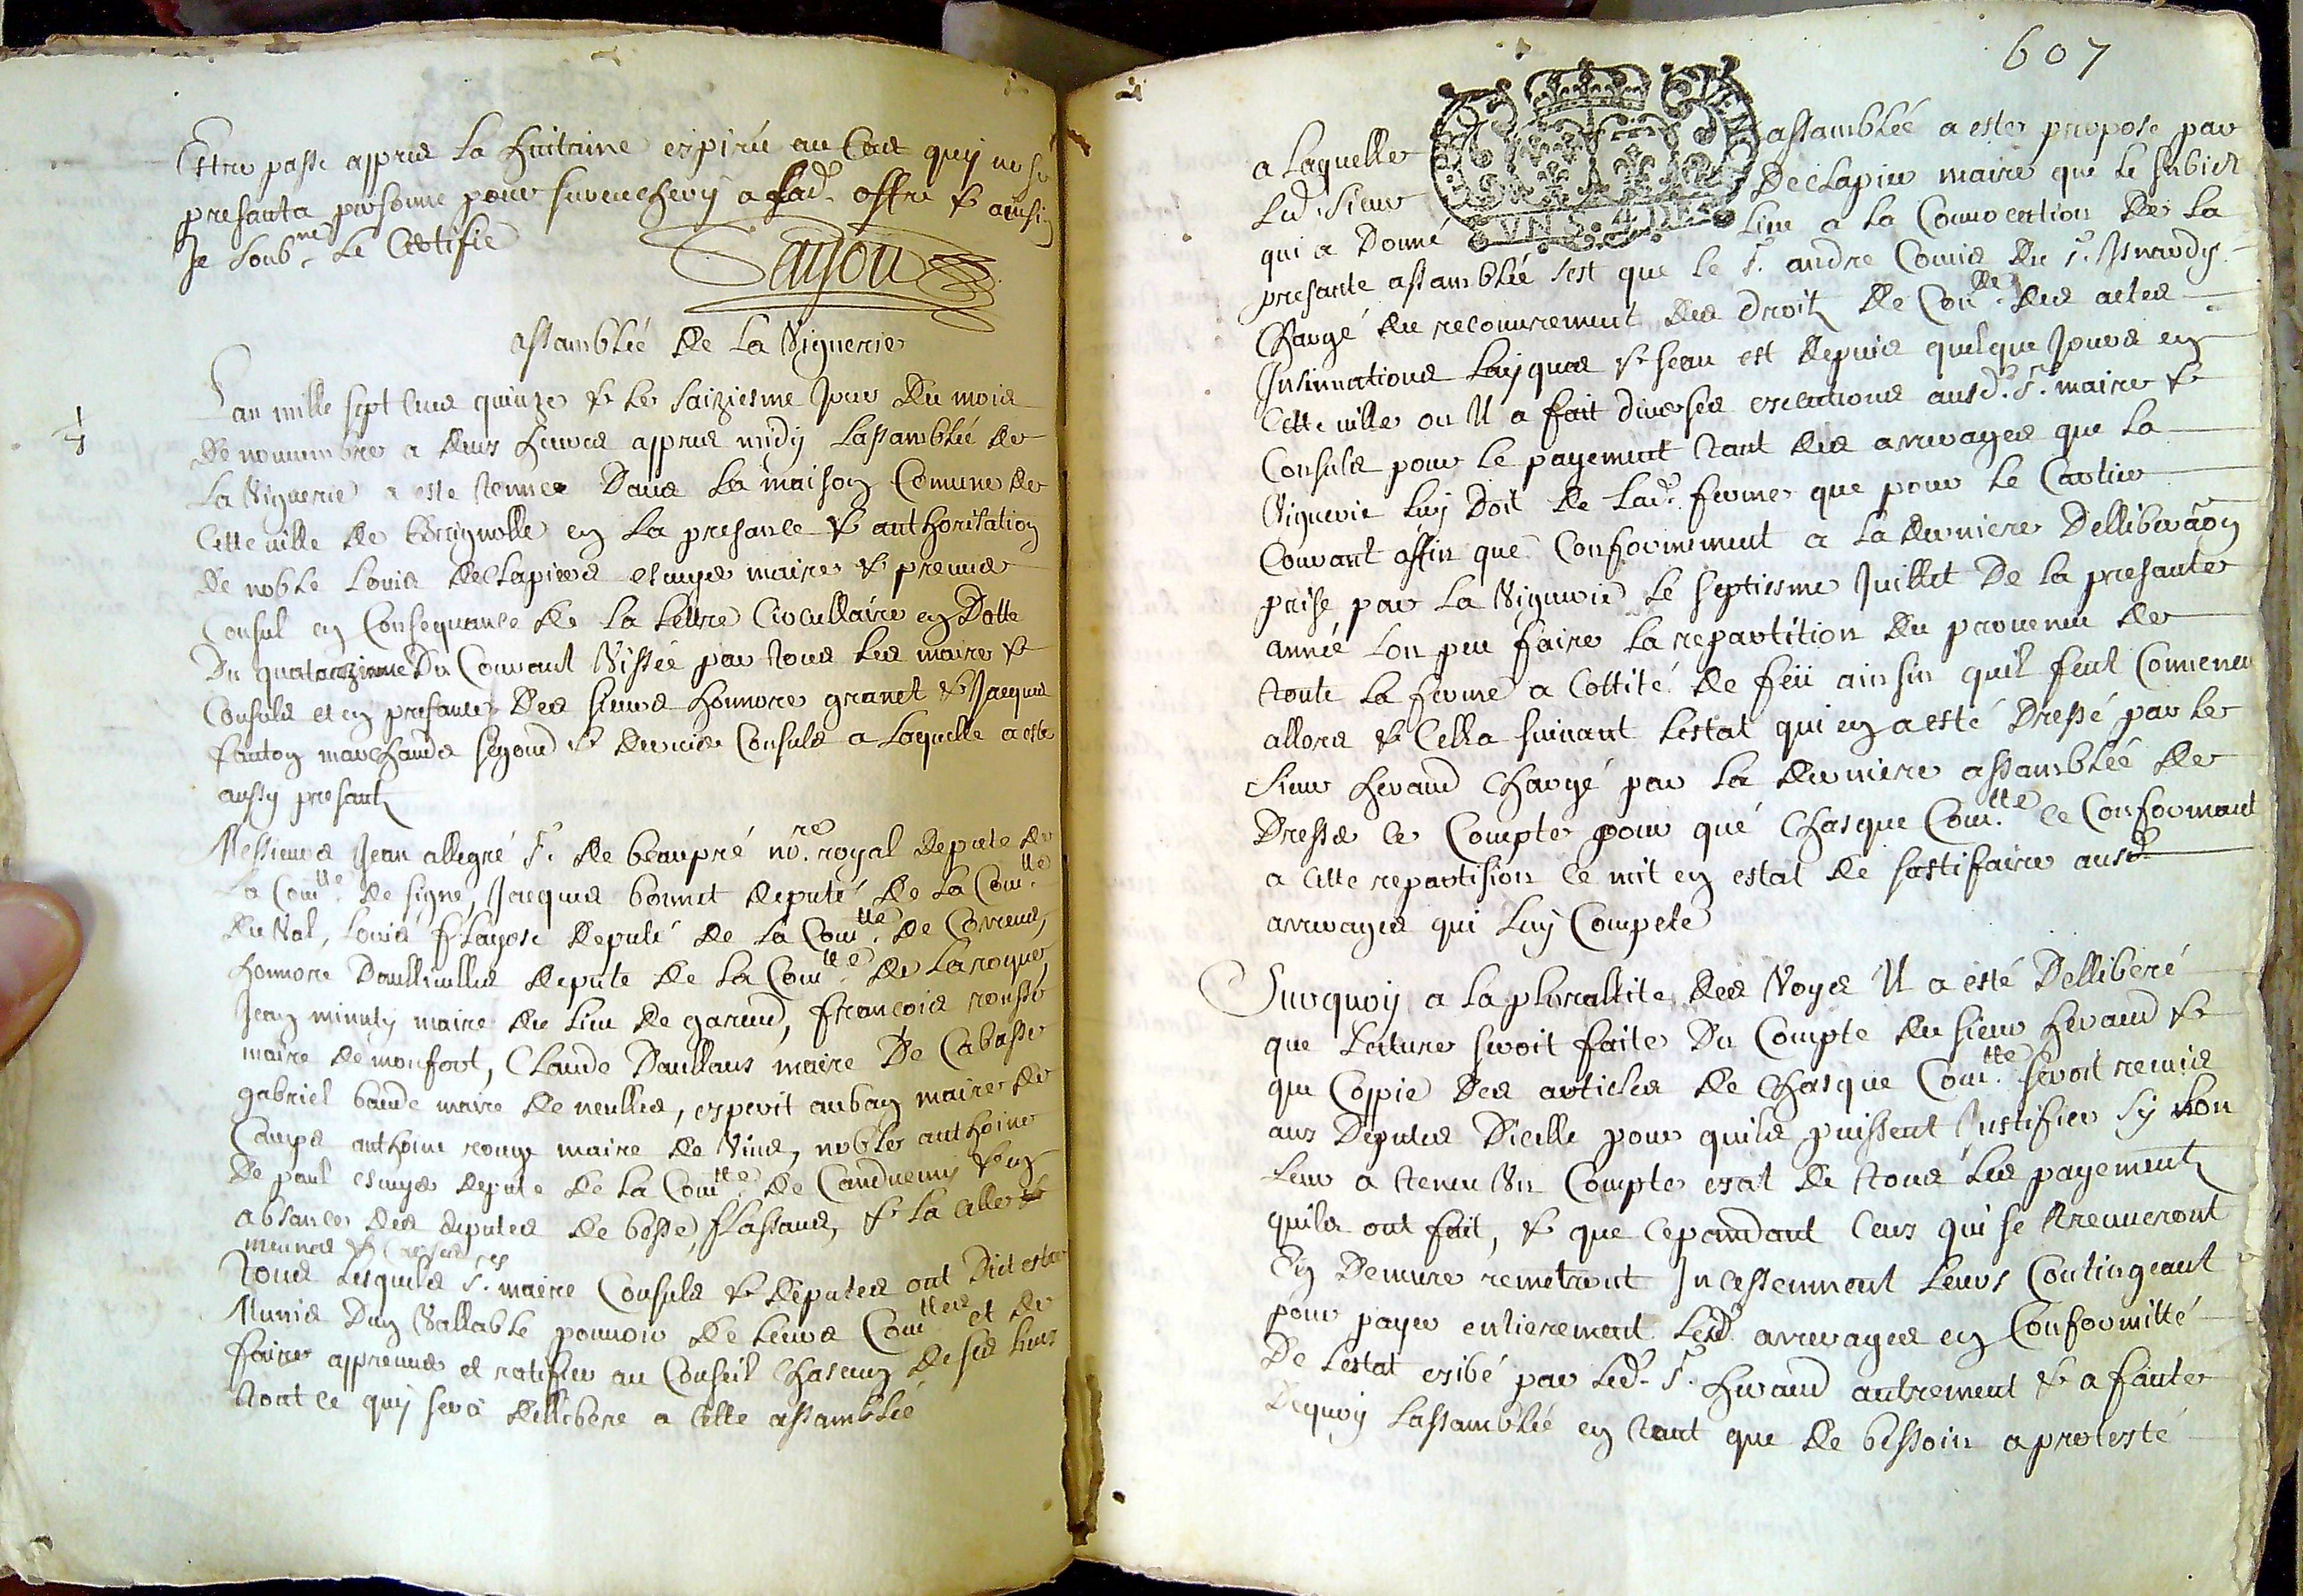 Estre passe appres la huitaine expirée au Cas quy ne se
presanta personne pour surencherir a lad. offre & ainsin
Je soubné le Certifie
assamblée de la Viguerie
Lan mille sept Cens quinze & le saiziesme Jour du mois
de nouvembre a deux heures appres midy lassamblée de
la Viguerie a este tenue dans la maison Comune de
Cette ville de Brignolle en la presance & authorisation
de noble Louis deClapiers escuyer maire & premier
Consul en Consequance de la lettre Circullaire en datte
du quatorzieme du Courant Vissée par tous les maire &
Consuls et en presance des sieurs honnore granet & Jacques
fanton marchands segond & dernier Consuls a laquelle a este
aussy presants
Messieurs Jean allegré Sr. de beaupré nore. royal depute de
la Comtte. de signe, Jacques bonnet deputé de la Comtte.
du Val, Louis flayose deputé de la Comtte. de Correns,
honnore depute de la Comtte. de laroque,
Jean minuty maire du lieu de garend, francois
maire de monfort, Claude maire de Cabasse
gabriel baude maire de neulles, esperit auban maire de
Camps anthoine rouge maire de Vins, noble anthoine
de paul escuyer depute de la Comtte. de & en
absance des deputes de besse, flassans, & la Celle
Tous lesquels Srs. maire Consuls & deputes ont dict estre
Munis dun Vallable pouvoir de leurs Comttes et de
faire appreuver et ratifier au Conseil chascung de ses lieux
tout ce quy sera delliberé a Cette assamblée
607
a laquelle assamblée a este propose par
led. sieur DeClapier maire que le subiet
qui a donné lieu a la Convocation de la
presante assamblée sest que le Sr. andre Comis du Sr. Isnardy
Chargé du recouvrement des droits de Conlle. des actes
Insinuations layques & seau est depuis quelque Jours en
Cette ville ou Il a fait diverses executions ausd. Sr. maire &
Consuls pour le payement tant des arrerages que la
Viguerie luy doit de lad. ferme que pour le Cartier
Courant affin que Conformement a la derniere Delliberaon
prise par la Viguerie le septiesme Juillet de la presante
année lon peu faire la repartition du provenu de
toute la ferme a Cottité de feü ainsin quil feut Convenu
allors & Cella suivant lestat qui en a esté dressé par le
sieur heraud Chargé par la derniere assamblée de
dresser ce Compte pour qué Chasque Comtte. ce Conformant
a Cette repartision ce mit en estat de sastifaire ausd.
arrerages qui luy Compete
Surquoy a la plurallite des Voyes Il a esté Delliberé
que lecture seroit faite du Compte du sieur heraud &
que Coppie des articles de Chasque Comtte. seroit remis
aux deputes dicelle pour quils puissent Justifier sy lon
leur a tenu Un Compte exat de tous les payements
quils ont fait, & que cepandant Ceux qui se treuveront
En demure remetront Incessemment leurs Contingeant
pour payer entierement lesd. arrerages en Conformitté
de lestat exibé par led. Sr. heraud autrement & a faute
dequoy lassamblée en tant que de bessoin a protesté